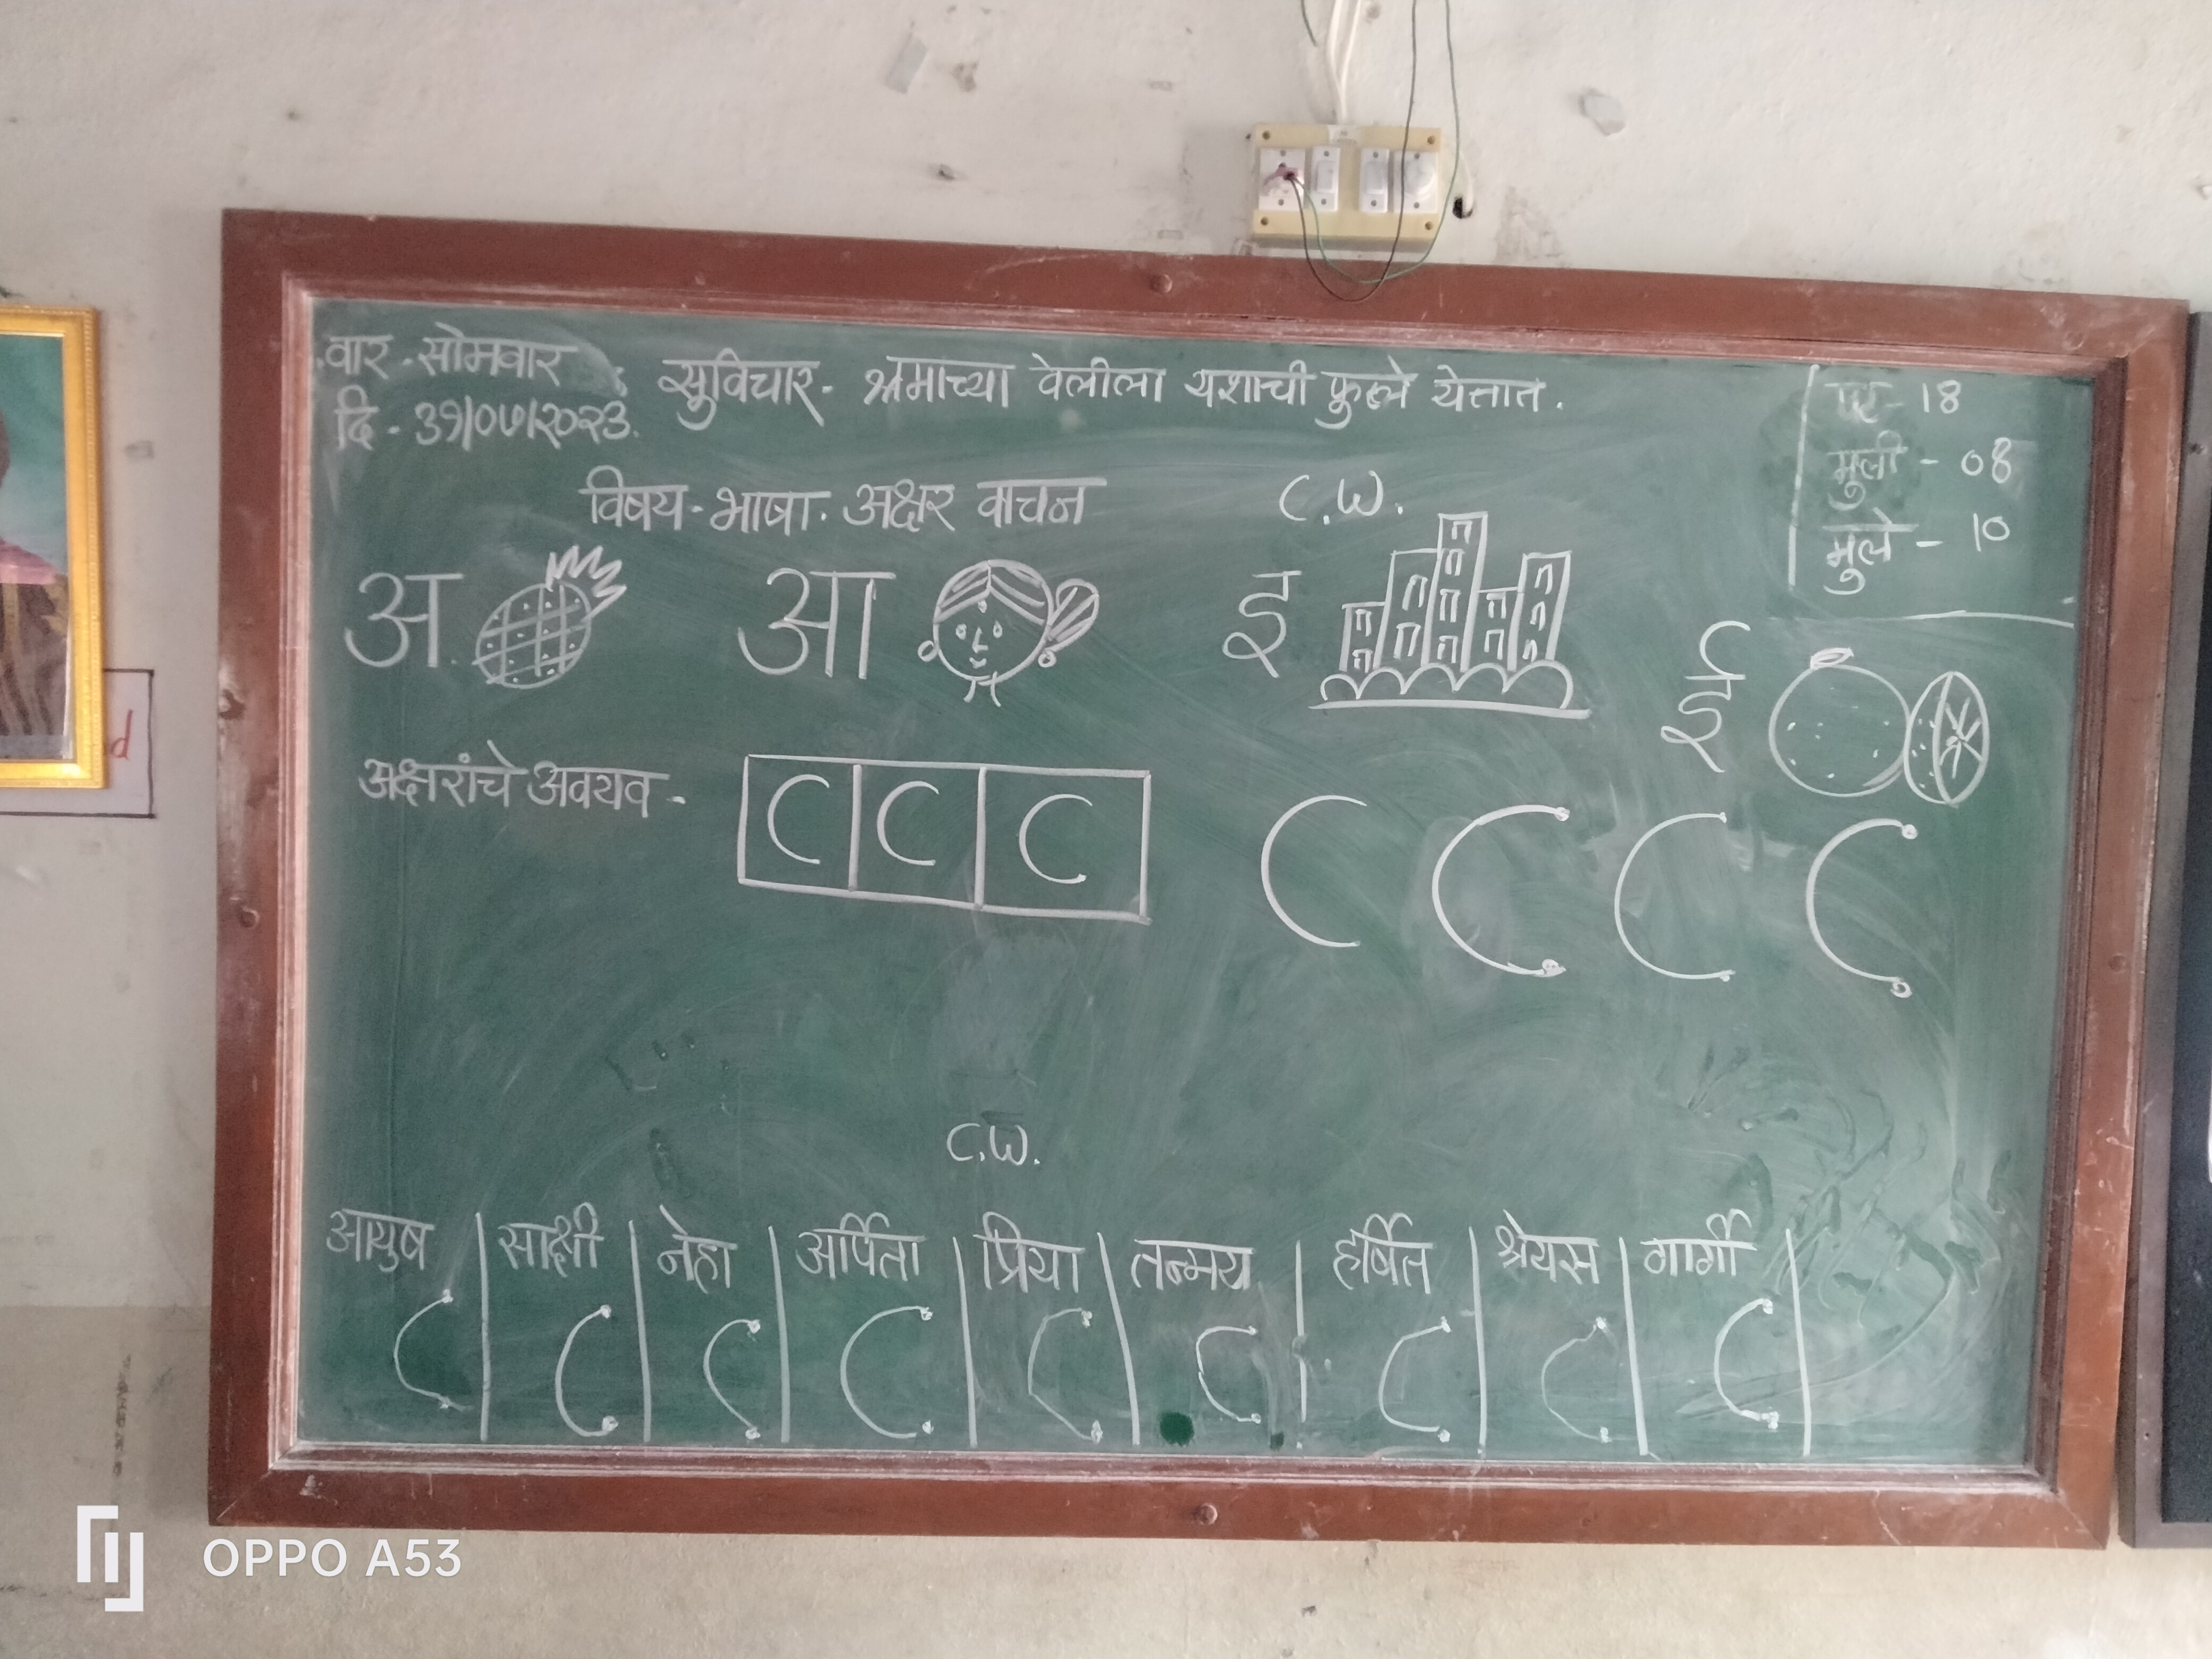 वार - सोमवार
दि - ३१/०७/२०२३.
सुविचार - श्रमाच्या वेलीला यशाची फुले येतात.
पट - 18
मुली - 08
मुले - 10
विषय - भाषा. अक्षर वाचन C.W.
अ आ इ ई
अक्षरांचे अवयव - C C C C C C C
C.W.
आयुष साक्षी नेहा अर्पिता प्रिया तन्मय हर्षित श्रेयस गार्गी
C C C C C C C C C
d
OPPO A53